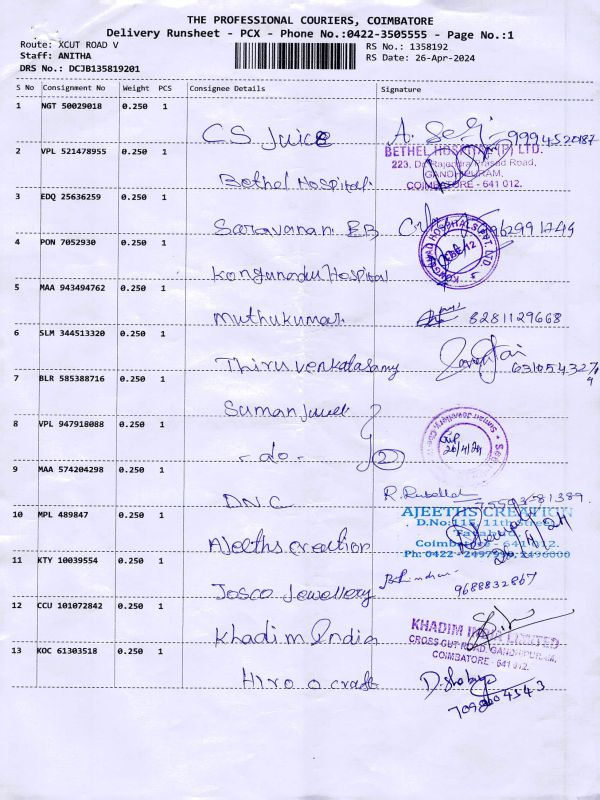 THE PROFESSIONAL COURIERS, COIMBATORE
Delivery Runsheet - PCX - Phone No.:0422-3505555 - Page No.:1
Route: XCUT ROAD V
RS No.: 1358192
Staff: ANITHA
RS Date: 26-Apr-2024
DRS No.: DCJB135819201
S No Consignment No Weight PCS Consignee Details Signature
1 NGT 50029018 0.250 1
CS Juice 9994520187
2 VPL 521478955 0.250 1
BETHEL HOSPITAL (P) LTD.
223, Dr. Rajendra Prasad Road,
GANDHIPURAM,
COIMBATORE - 641 012.
Bethel Hospital.
3 EDQ 25636259 0.250 1
Saravanan EB
4 PON 7052930 0.250 1
Kongunadu Hospital
5 MAA 943494762 0.250 1
Muthukumar. 8281129668
6 SLM 344513320 0.250 1
Thiruvenkatasamy
7 BLR 585388716 0.250 1
Suman Juwel
8 VPL 947918088 0.250 1
- do - 2
26/4/24
9 MAA 574204298 0.250 1
DNC
10 MPL 489847 0.250 1
AJEETHS CREATION
D.No:115, 11th Street,
Tatabad,
Coimbatore - 641 012.
Ajeeths creation
11 KTY 10039554 0.250 1
Josco Jewellery 9688832867
12 CCU 101072842 0.250 1
Khadim India
KHADIM INDIA LIMITED
CROSS CUT ROAD, GANDHIPURAM,
COIMBATORE - 641 012.
13 KOC 61303518 0.250 1
Hiro o craft